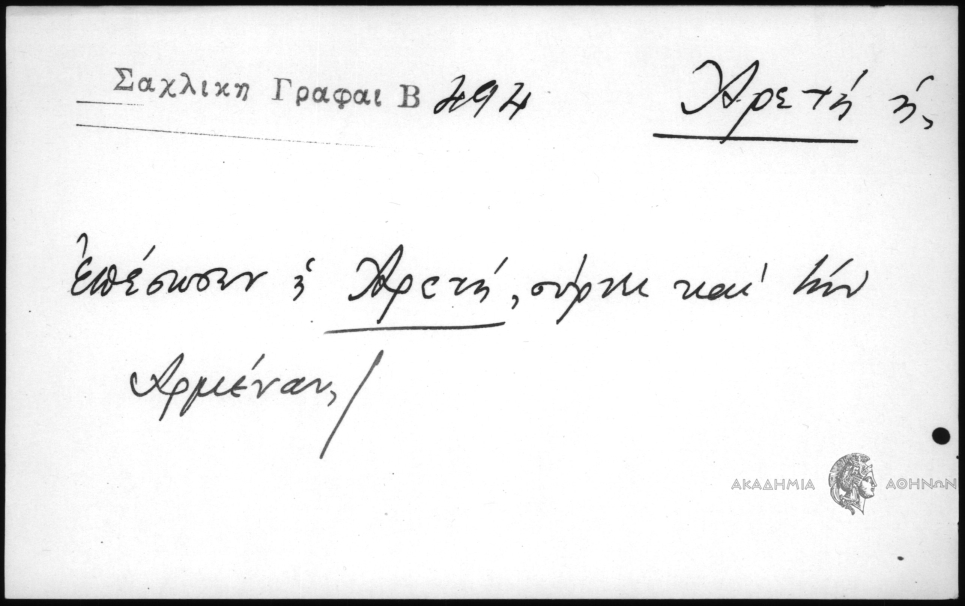 Σαχλικη Γραφαι Β 494 Ἀρετή ἡ,
ἐπέσωσεν ἡ Ἀρετή, σύρνει καὶ τὴν
Ἀρμέναν,/
ΑΚΑΔΗΜΙΑ ΑΘΗΝΩΝ